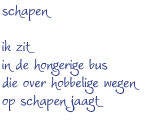 schapen

ik zit
in de hongerige bus
die over hobbelige wegen
op schapen jaagt